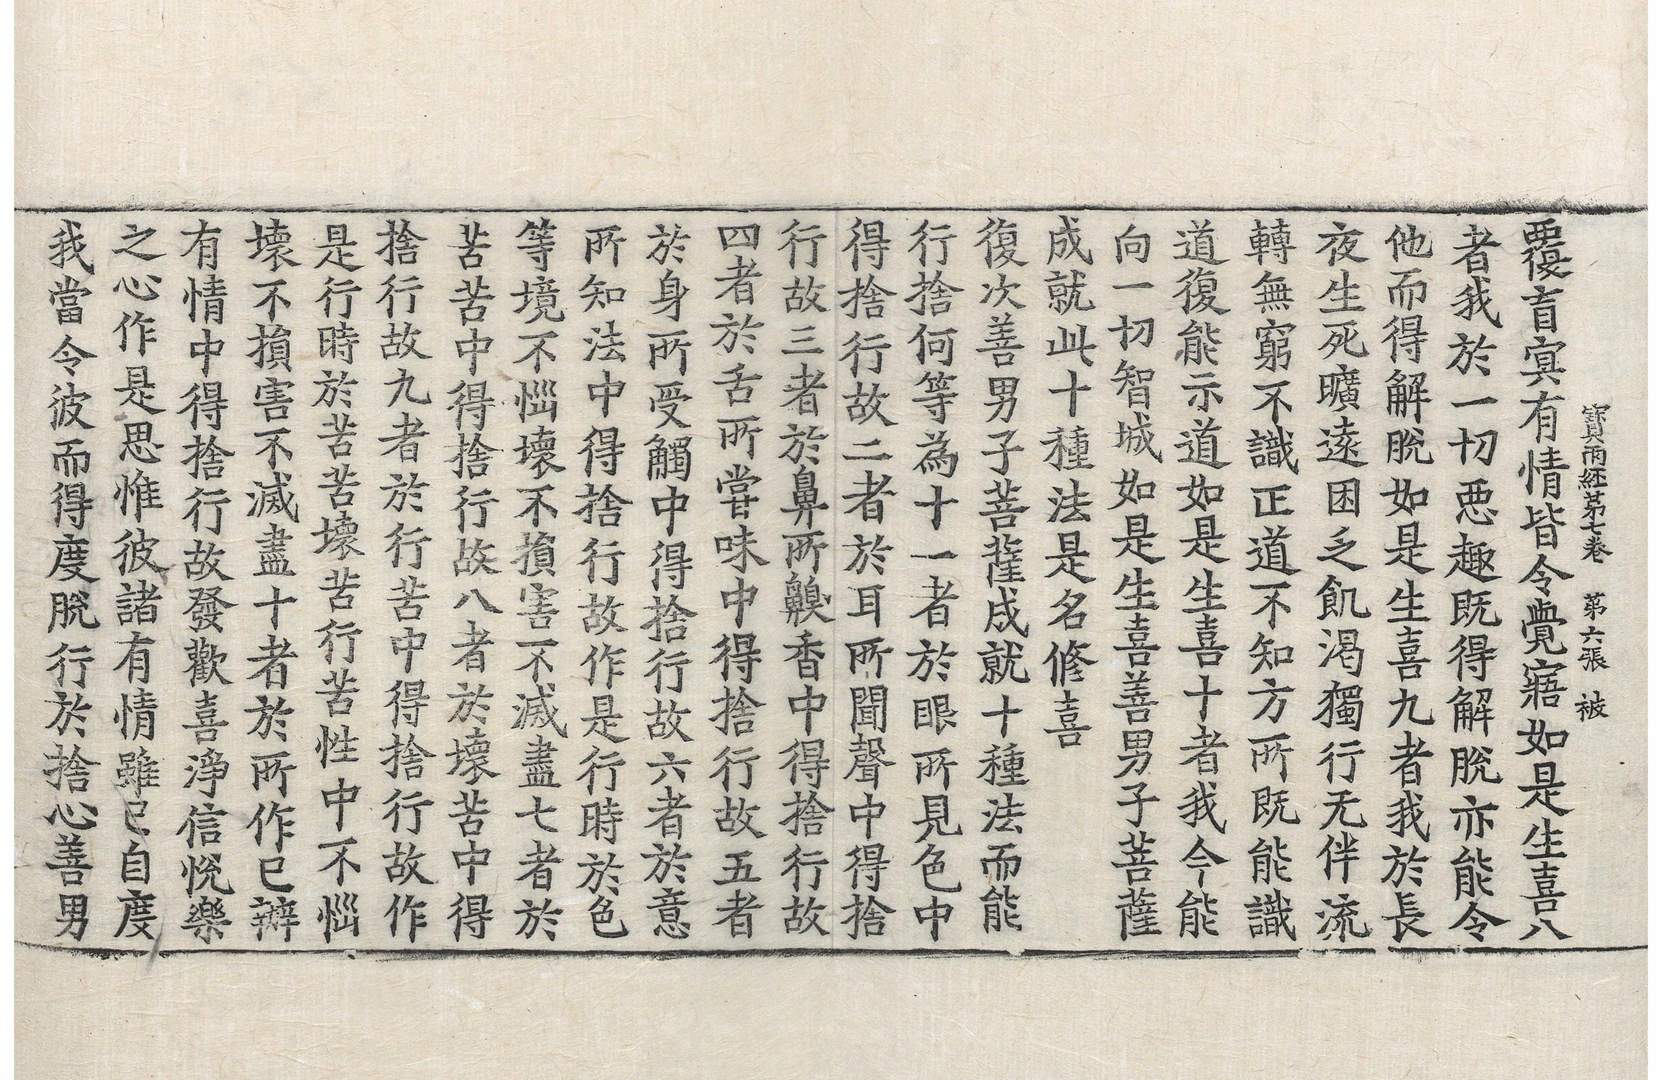 寶雨經第七卷 第六張 被
覆盲冥有情皆令覺寤如是生喜八
者我於一切惡趣既得解脫亦能令
他而得解脫如是生喜九者我於長
夜生死曠遠困乏飢渴獨行无伴流
轉無窮不識正道不知方所既能識
道復能示道如是生喜十者我今能
向一切智城如是生喜善男子菩薩
成就此十種法是名修喜
復次善男子菩薩成就十種法而能
行捨何等為十一者於眼所見色中
得捨行故二者於耳所聞聲中得捨
行故三者於鼻所齅香中得捨行故
四者於舌所嘗味中得捨行故五者
於身所受觸中得捨行故六者於意
所知法中得捨行故作是行時於色
等境不惱壞不損害不滅盡七者於
苦苦中得捨行故八者於壞苦中得
捨行故九者於行苦中得捨行故作
是行時於苦苦壞苦行苦性中不惱
壞不損害不滅盡十者於所作已辦
有情中得捨行故發歡喜淨信悅樂
之心作是思惟彼諸有情雖已自度
我當令彼而得度脫行於捨心善男